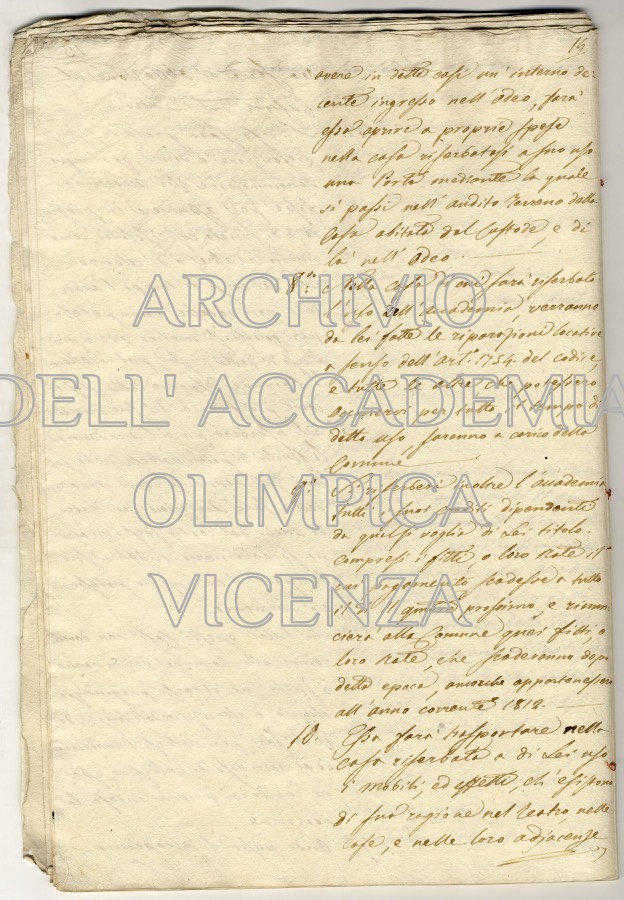 15.
avere in dette case un' interno de=
cente ingresso nell' Odeo, farà
essa aprire a proprie spese
nella casa riserbatasi a suo uso
una Porta mediante la quale
si passi nell' andito terreno della
Casa abitata dal Custode, e di
là nell' Odeo.
8.° Nella Casa di cui sarà riserbato
l'uso all' Accademia verranno
da lei fatte le riparazione locative
a senso dell' Art.° 1754. del codice,
e tutte le altre che potessero
occorrervi per tutto il tempo di
detto uso, saranno a carico della
Comune
9.° Si riserberà inoltre l' accademia
tutti i suoi crediti dipendente
da qualsi voglia di Lei titolo.
compresi i fitti, o loro Rate il
cui pagamento scadesse a tutto
il dì 11 prossimo, e rinun
cierà alla Comune quei fitti, o
loro Rate, che scaderanno dopo
detta epoca, ancorchè appartenessero
all' anno corrente 1812.
10. Essa farà trasportare nella
casa riserbata a di Lei uso
i mobili, ed effetti, ch' esistono
di sua ragione nel Teatro, nelle
Case, e nelle loro adjacenze
ARCHIVIO
DELL' ACCADEMIA
OLIMPICA
VICENZA